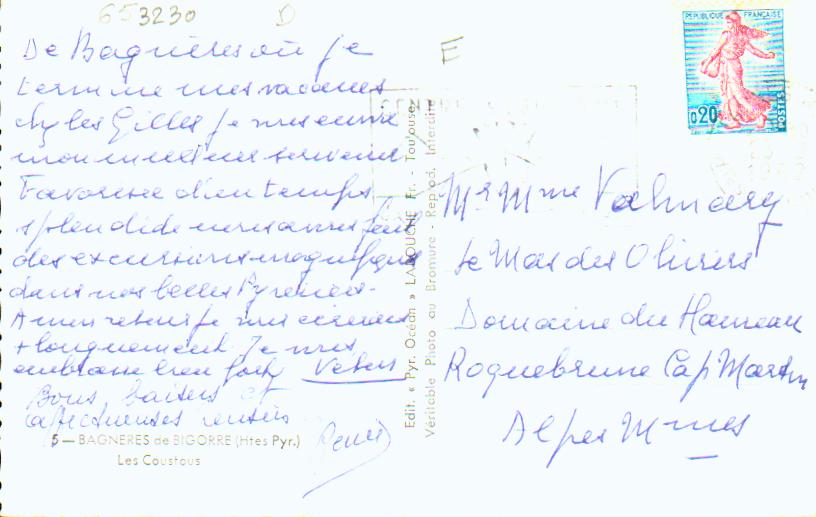 653230 D
E
De Bagnères où je
termine mes vacances
chez les Gilles je vous envoie
mon meilleur souvenir.
Favorisée d'un temps
splendide nous avons fait
des excursions magnifiques
dans nos belles Pyrénées.
A mon retour je vous écrirai
+ longuement. Je vous
embrasse bien fort
Bons baisers et
affectueuses pensées
5 — BAGNERES de BIGORRE (Htes Pyr.)
Les Coustous
Edit. « Pyr. Océan » LABOUCHE Fr. - Toulouse
Véritable Photo au Bromure - Reprod. Interdite
REPUBLIQUE FRANÇAISE
0,20
POSTES
Mr Mme Valmary
Le Mas des Oliviers
Domaine du Hameau
Roquebrune Cap Martin
Alpes Mmes